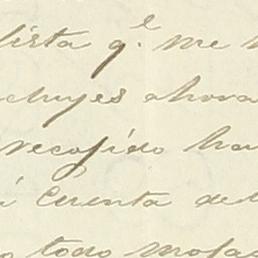 lista qe. me
cluyes ahora
recojido ha
á Cuenta de
todo